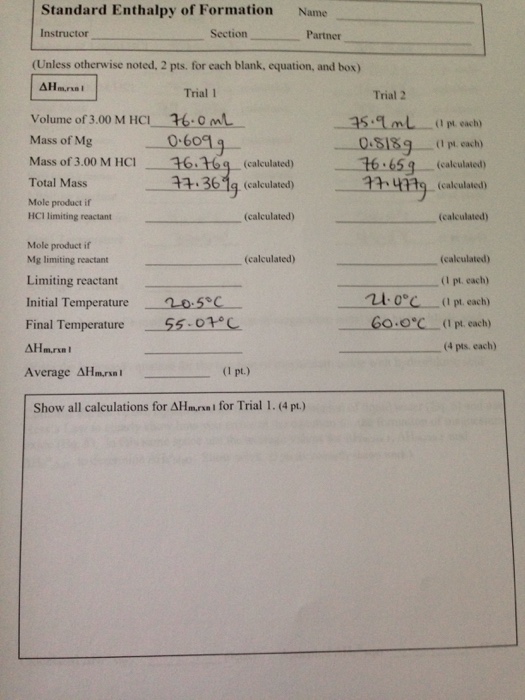 Standard Enthalpy of Formation Name
Instructor Section Partner
(Unless otherwise noted, 2 pts. for each blank, equation, and box)
ΔHm,rxn 1 Trial 1 Trial 2
Volume of 3.00 M HCl 76.0 mL 75.9 mL (1 pt. each)
Mass of Mg 0.609 g 0.818 g (1 pt. each)
Mass of 3.00 M HCl 76.76 g (calculated) 76.65 g (calculated)
Total Mass 77.369 g (calculated) 77.477 g (calculated)
Mole product if
HCl limiting reactant (calculated) (calculated)
Mole product if
Mg limiting reactant (calculated) (calculated)
Limiting reactant (1 pt. each)
Initial Temperature 20.5°C 21.0°C (1 pt. each)
Final Temperature 55.07°C 60.0°C (1 pt. each)
ΔHm,rxn 1 (4 pts. each)
Average ΔHm,rxn 1 (1 pt.)
Show all calculations for ΔHm,rxn 1 for Trial 1. (4 pt.)